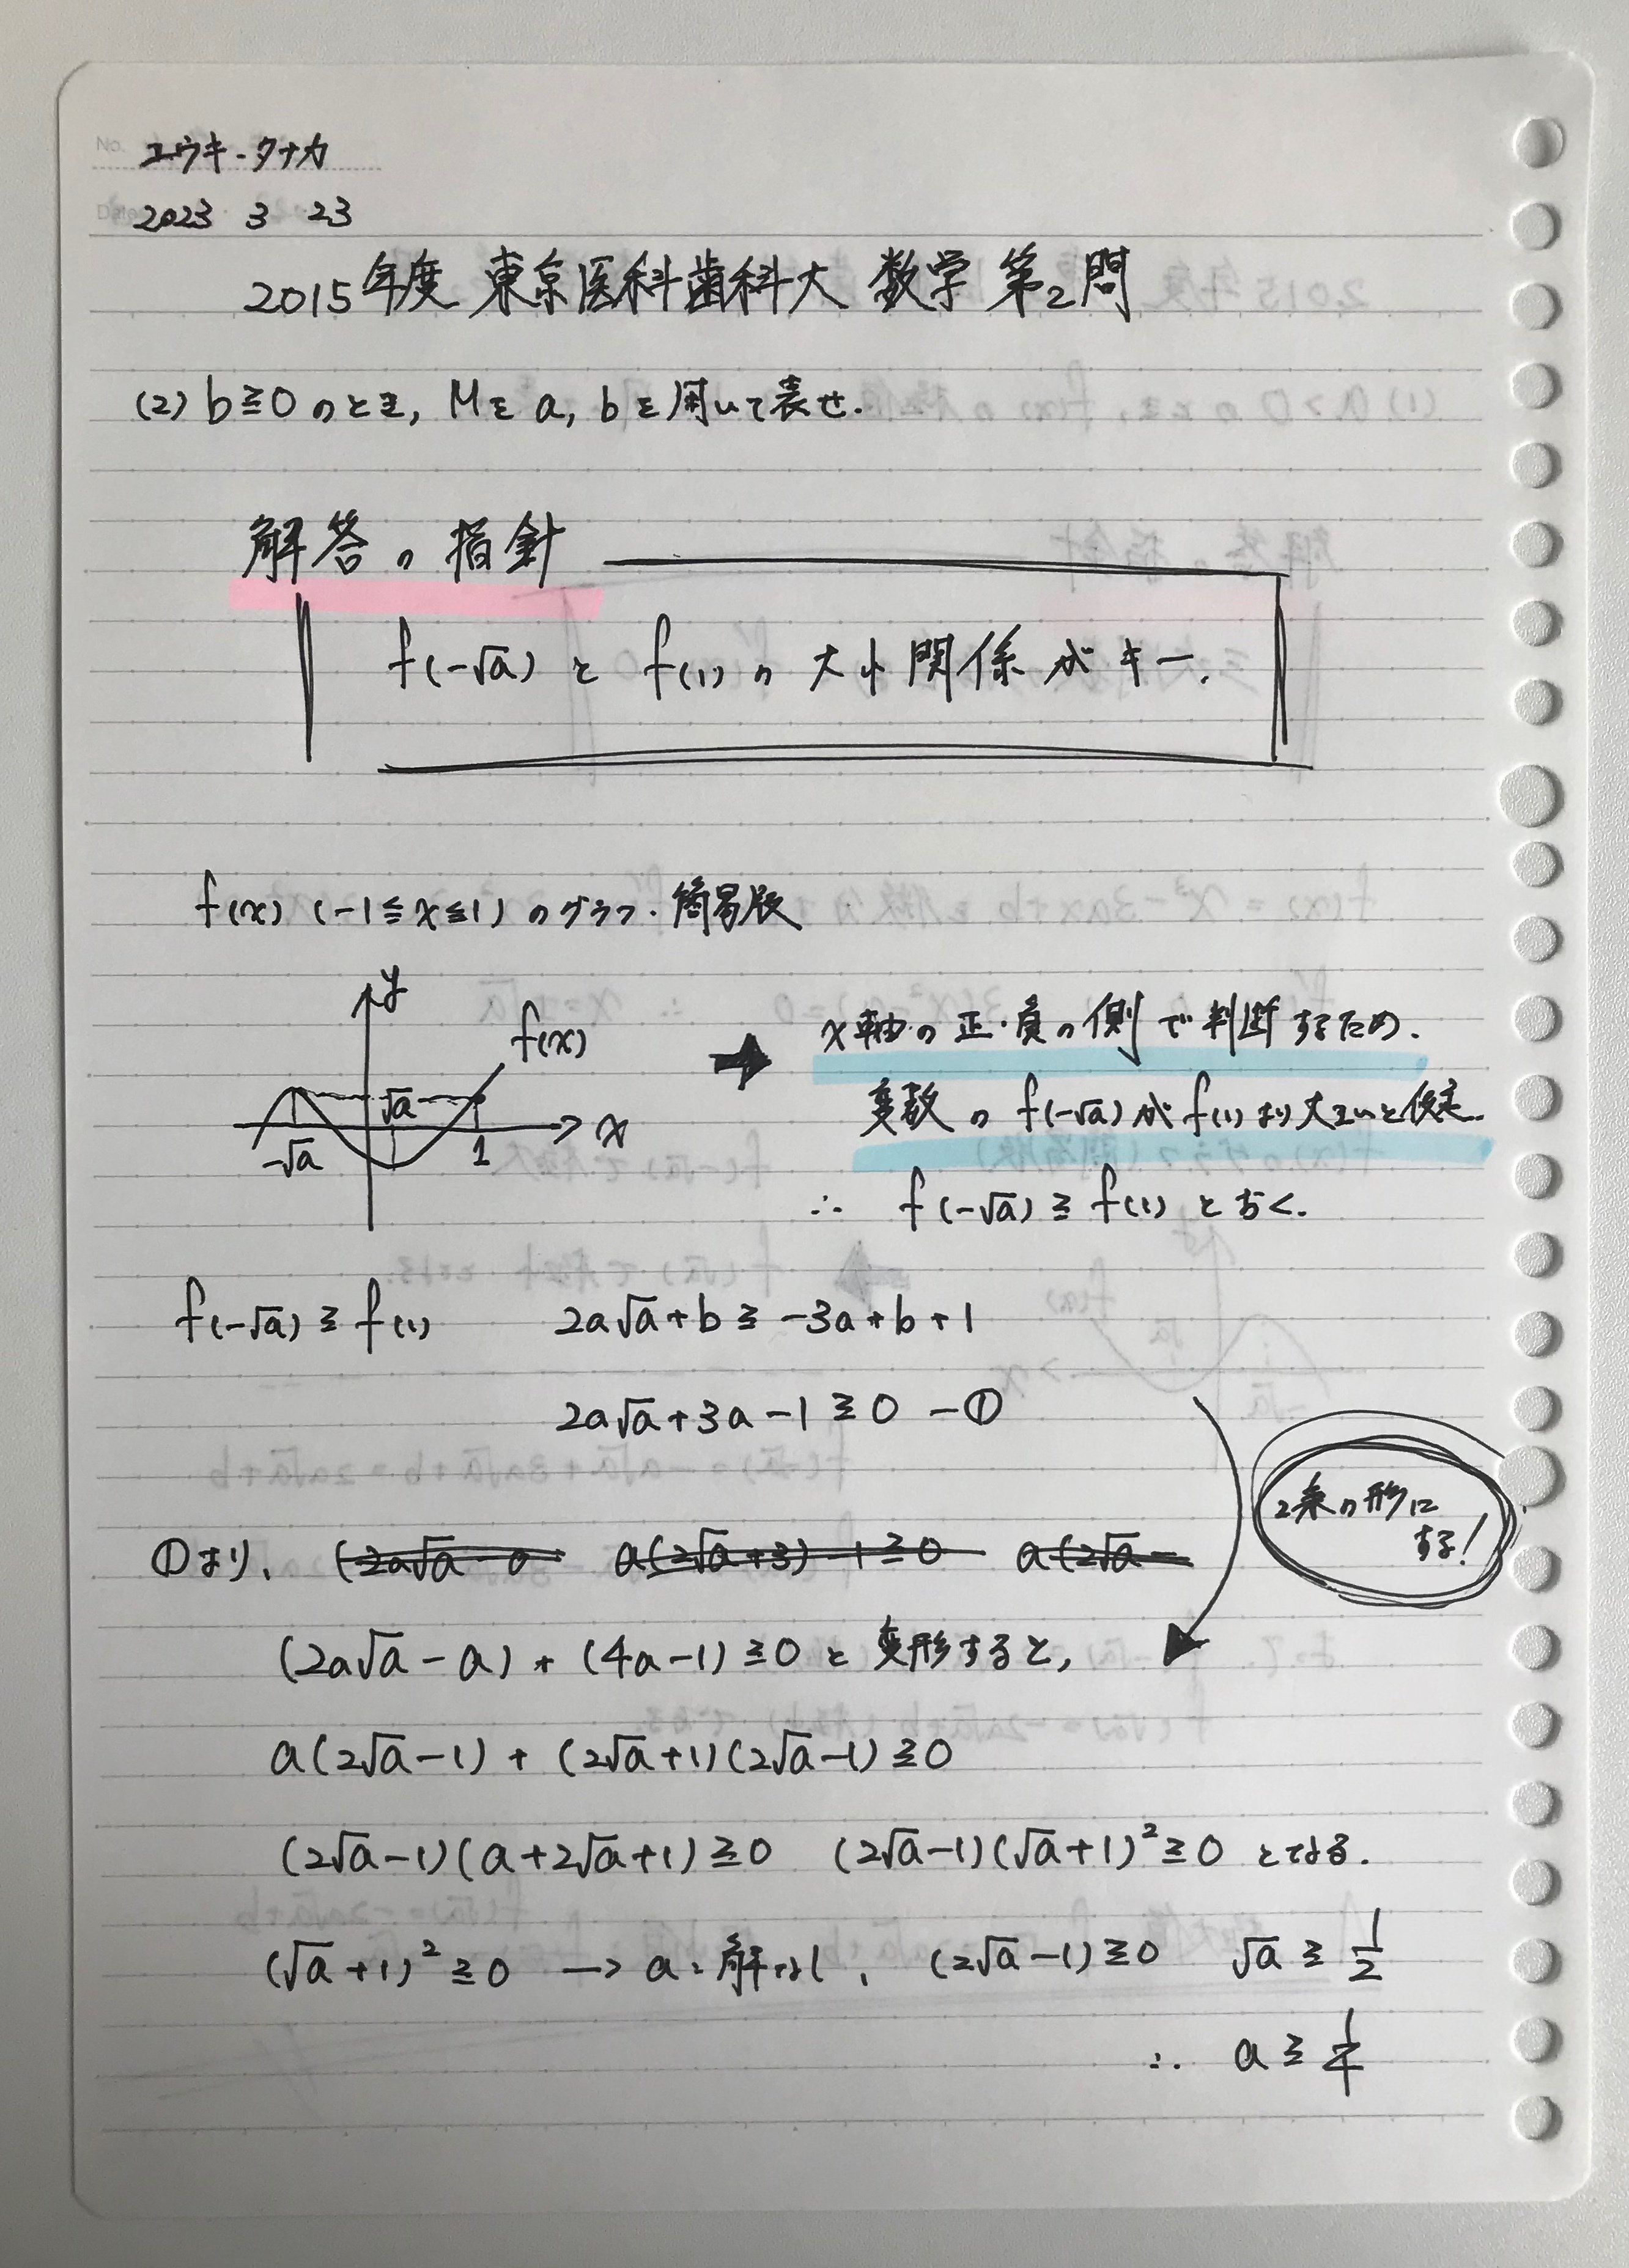 No. ユウキ・タナカ
Date 2023 3 23
2015年度 東京医科歯科大 数学 第2問
(2) b≧0 のとき, Mを a, b を用いて表せ.
解答の指針
f(-√a) と f(1) の 大小関係がキー.
f(x) (-1≦x≦1) のグラフ・簡易版
y
f(x)
√a
-√a
1
x
➡ x軸の正・負の側で判断するため.
変数の f(-√a) が f(1) より大きいと仮定.
∴ f(-√a) ≧ f(1) とおく.
f(-√a) ≧ f(1) 2a√a+b ≧ -3a+b+1
2a√a+3a-1≧0 -①
2乗の形に
する!
①より、 (2a√a-a a(2√a+3)-1≧0 a(2√a-
(2a√a-a)+(4a-1)≧0 と変形すると,
a(2√a-1)+(2√a+1)(2√a-1)≧0
(2√a-1)(a+2√a+1)≧0 (2√a-1)(√a+1)²≧0 となる.
(√a+1)²≧0 → a:解なし、 (2√a-1)≧0 √a≧1/2
∴ a≧1/4